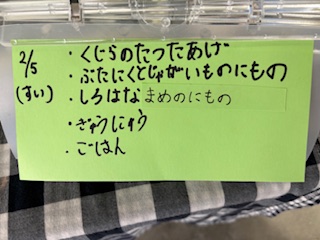 2/5
(すい)
・くじらのたつたあげ
・ぶたにくとじゃがいものにもの
・しろはなまめのにもの
・ぎゅうにゅう
・ごはん